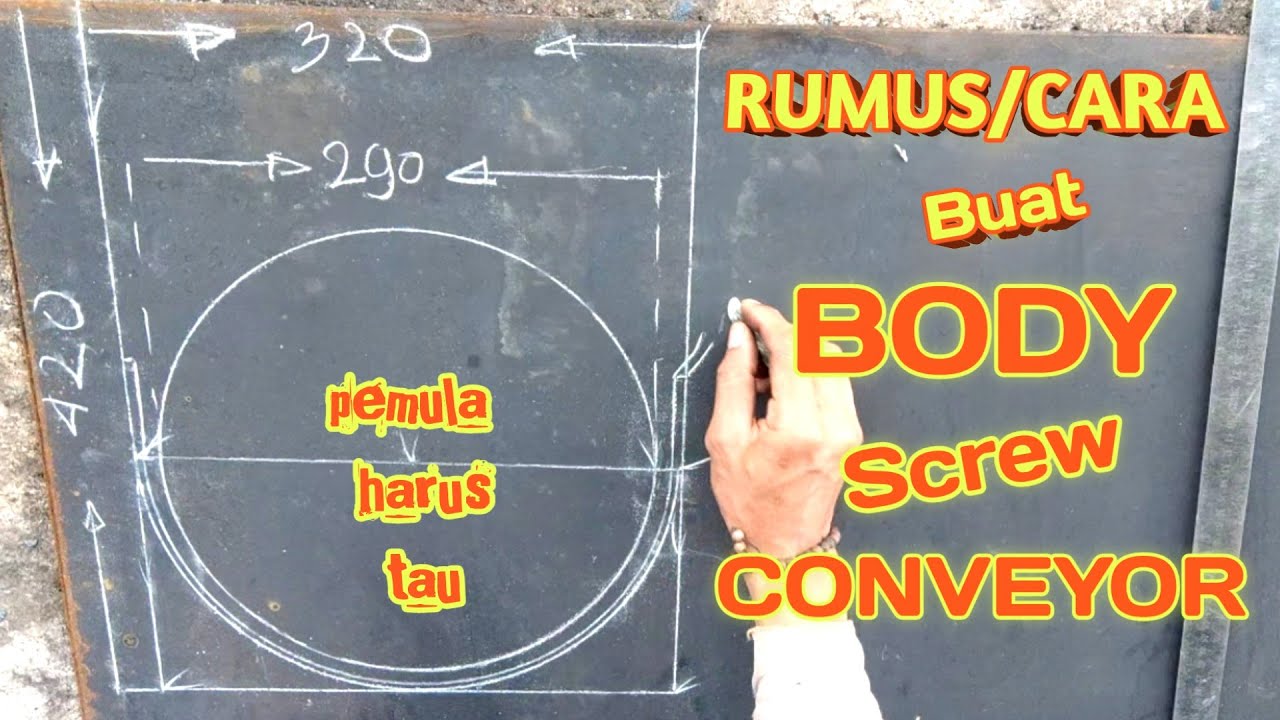 320
290
420
RUMUS/CARA
Buat
BODY
Screw
CONVEYOR
pemula
harus
tau